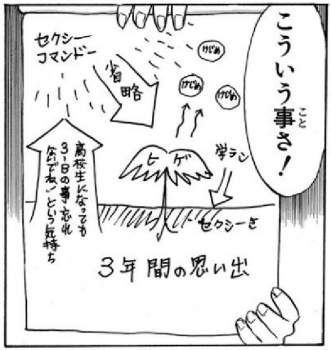 こういう事さ！
こと
セクシー
コマンドー
省略
けじめ
けじめ
けじめ
ヒゲ
学ラン
高校生になっても
3-1の事、忘れ
ないでね！という気持ち
セクシーさ
3年間の思い出